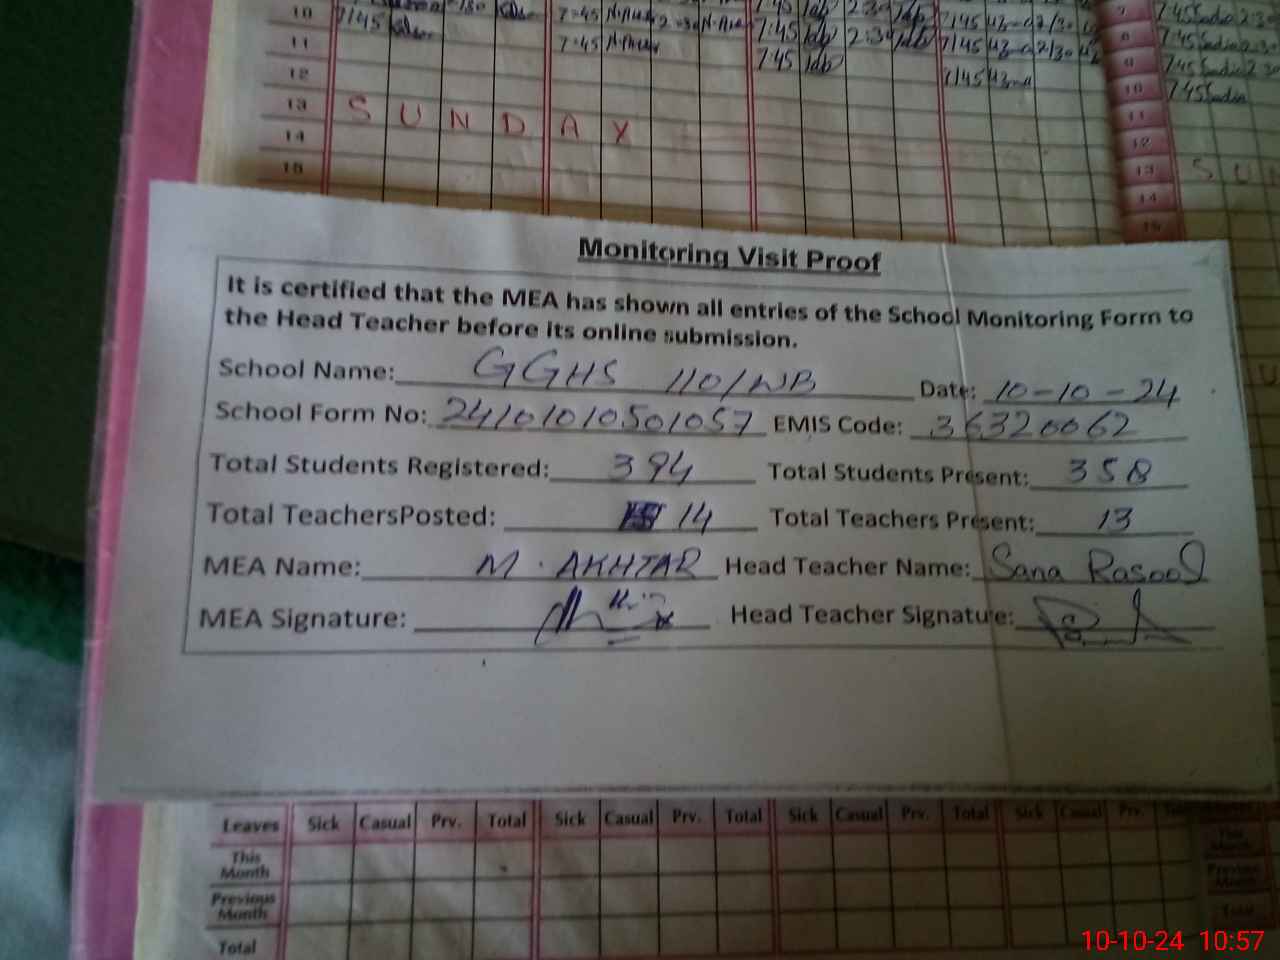 10 7/45 7:45 N.Aua 2:30 N.Aua 7:45 Idb 2:30 Idb 7/45 2/30 7 7:45 Sadia 2:30
11 7:45 7:45 Idb 2:30 Idb 7/45 2/30 8 7:45 Sadia 2:30
12 7:45 Idb 7/45 9 7:45 Sadia 2:30
13 S U N D A Y 10 7:45 Sadia
14 11
15 12
13 S U
14
15
Monitoring Visit Proof
It is certified that the MEA has shown all entries of the School Monitoring Form to
the Head Teacher before its online submission.
School Name: GGHS 110/WB Date: 10-10-24
School Form No: 24101010501057 EMIS Code: 36320062
Total Students Registered: 394 Total Students Present: 358
Total TeachersPosted: 14 Total Teachers Present: 13
MEA Name: M. AKHTAR Head Teacher Name: Sana Rasool
MEA Signature: Head Teacher Signature:
Leaves Sick Casual Prv. Total Sick Casual Prv. Total Sick Casual Prv. Total Sick Casual Prv.
This Month
Previous Month
Total
10-10-24 10:57